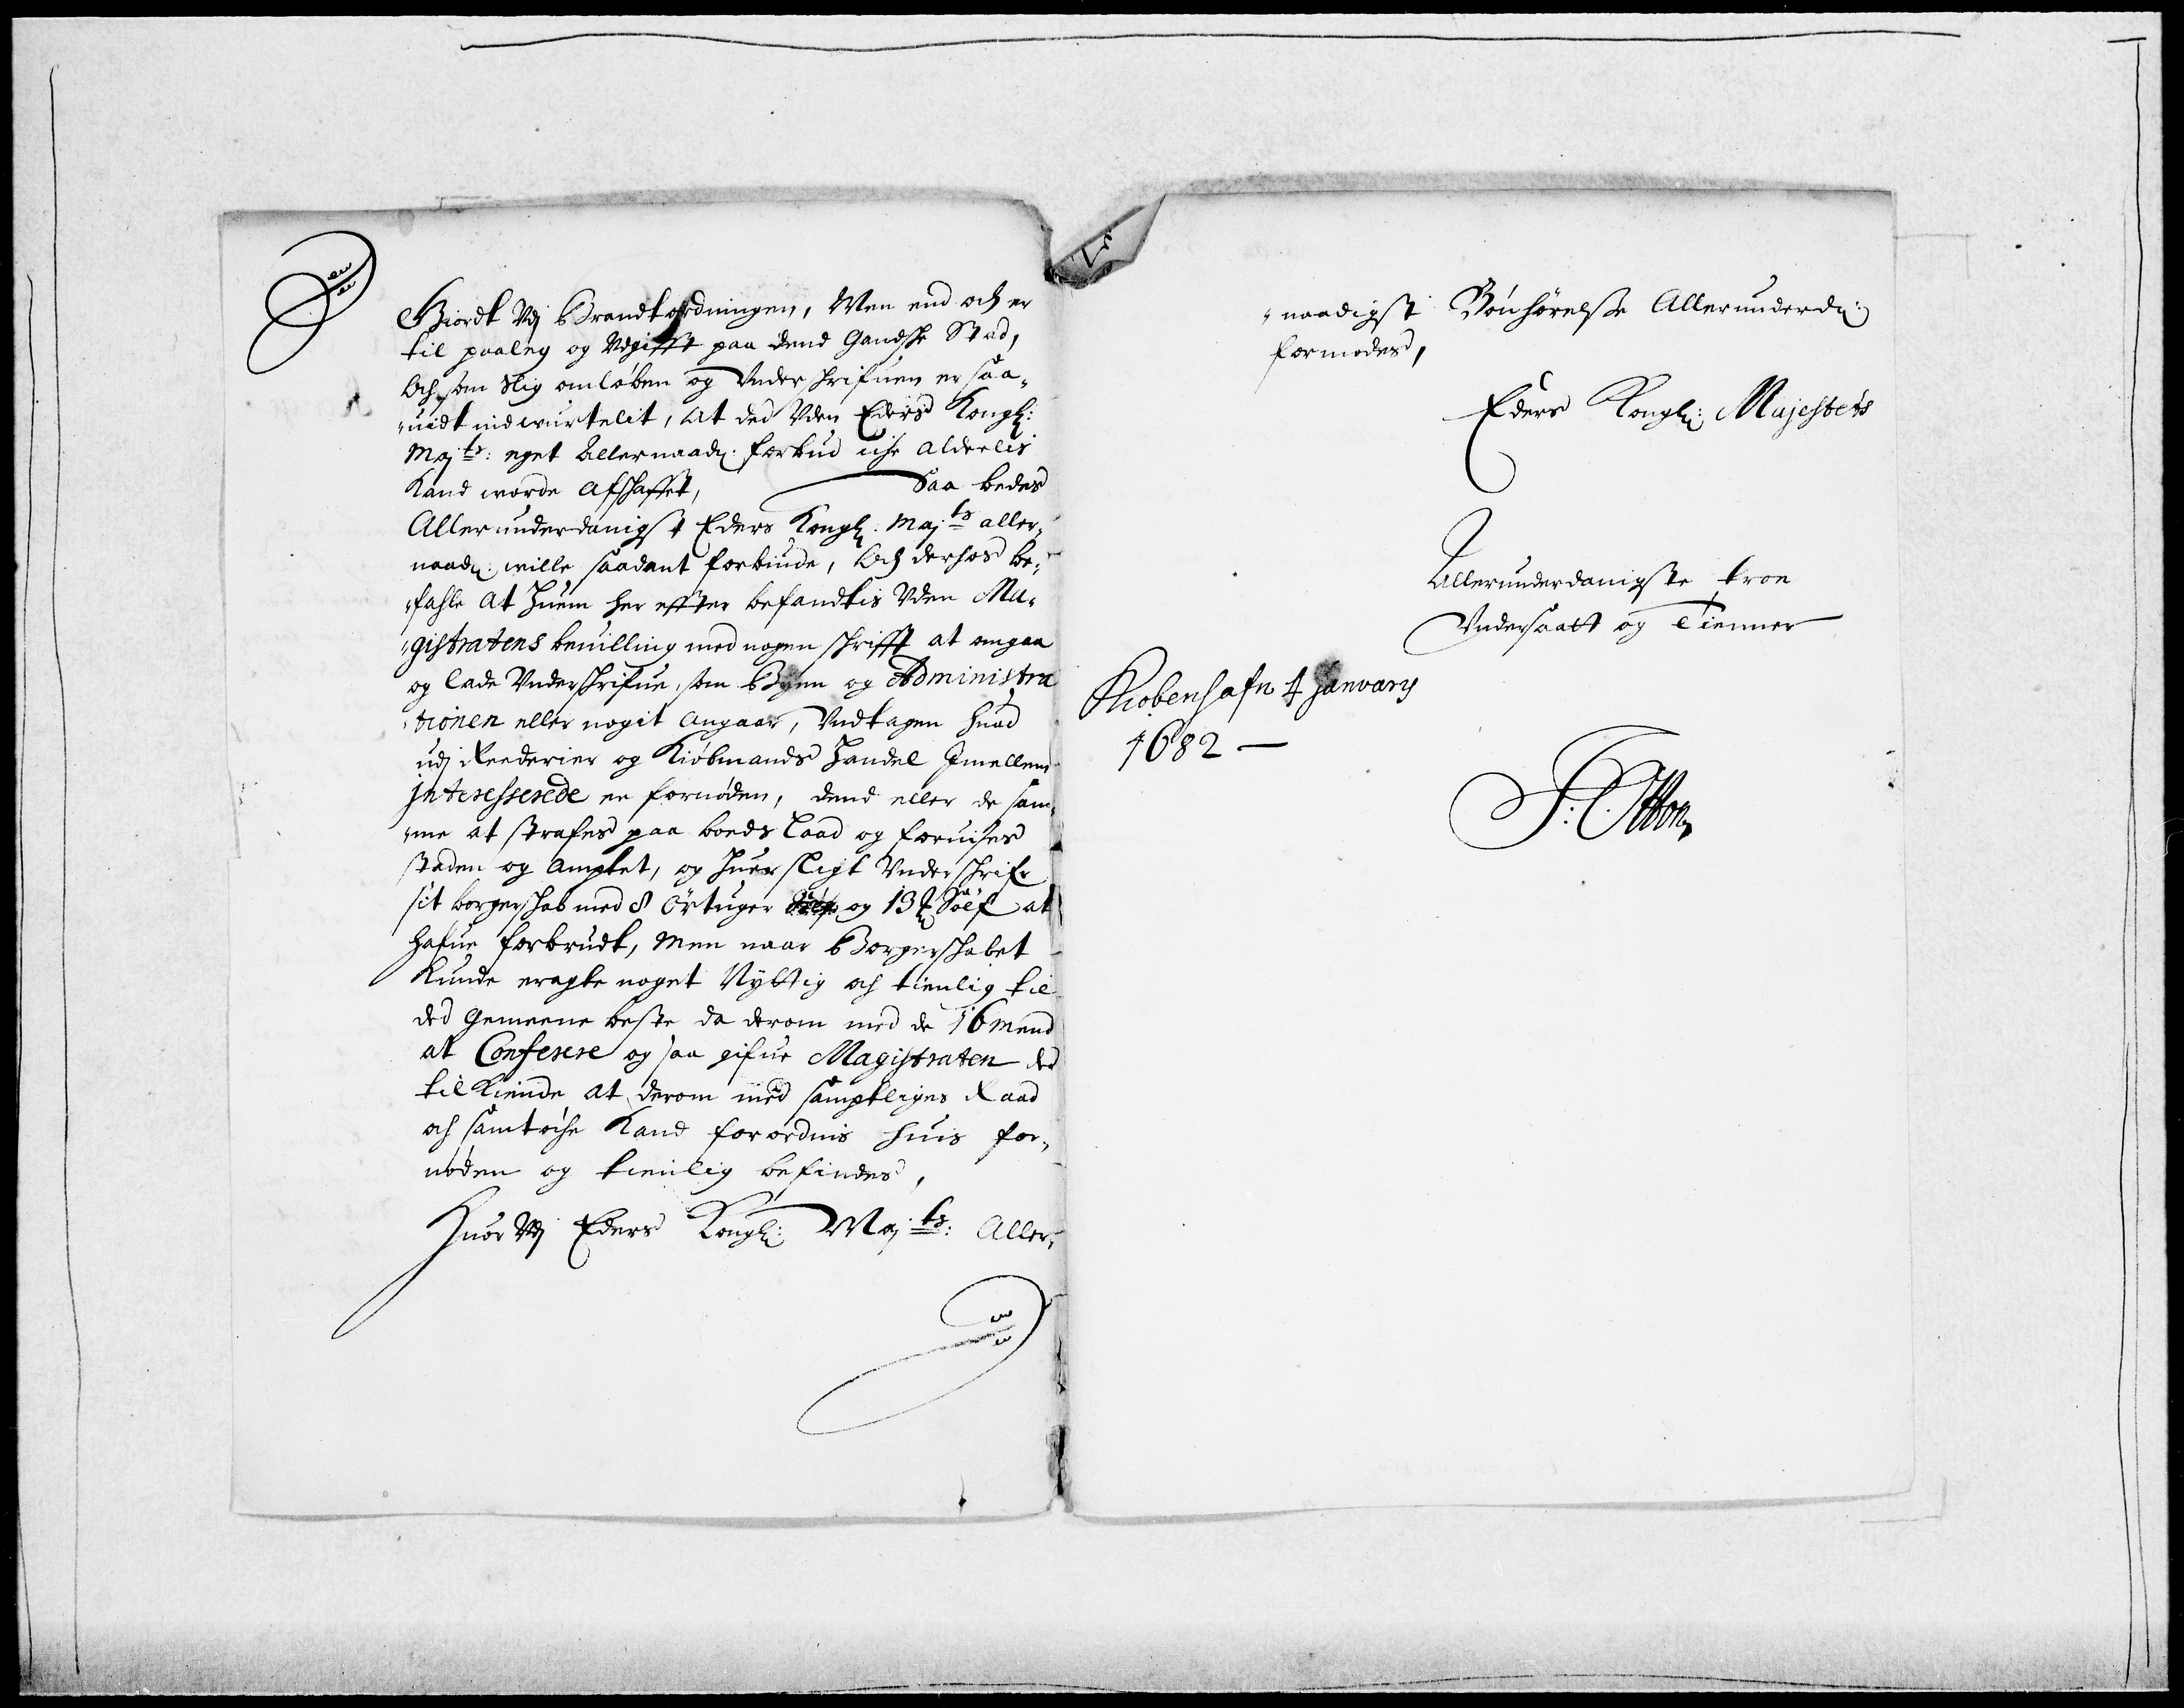 Giordt Vdj Brandtordningen, Men end och er
til paaleg og Vdgifft paa dend Gandske Stad,
Och som slig omløben og Vnderskrifuen er saa-
"uidt indwurtelit, At ded Vden Eders Kongl:
Maj:ts: eget Allernaad: forbud iche alderlis
Kand worde afskaffet, Saa bedes
Allerunderdanigst Eders Kongl: Maj:ts aller-
naad: wille saadant forbiude, Och derhos be-
"fahle at huem her effter befandtis Vden Ma-
"gistratens beuilling med nogen skrifft at omgaa
og lade Vnderskrifue, som Byen og Administra
"tionen eller nogit angaar, Vndtagen huad
udj Reederier og Kiöbmands Handel Jmellem
Jnteresserede er fornöden, dend eller de sam-
"me at straffes paa boeds Laad og foruises
staden og Amptet, og huer sligt Vnderskrifr
sit borgerskab med 8 Örtuger og 13 Sölf at
hafue forbrudt, Men naar Borgerskabet
Kunde eragte noget Nyttig och tienlig til
ded Gemeene beste da derom med de 16 mend
at Conferere og saa gifue Magistraten ded
tilkiende at derom med samptliges Raad
och samtöche Kand forordnis huis for-
nöden og tienlig befindes,
Huor Vdj Eders Kongl: Maj:ts: Aller-
"naadigst Bönhörelse Allerunderd:
formodes,
Eders Kongl: Majestets
Allerunderdanigste troe
Vndersaatt og Tienner
Kiobenhafn 4 January
1682 —